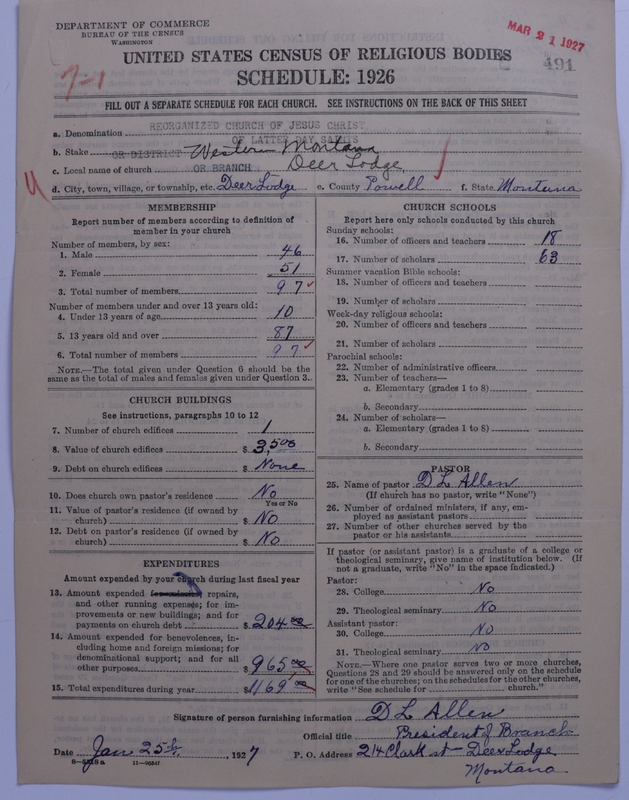 DEPARTMENT OF COMMERCE
BUREAU OF THE CENSUS
WASHINGTON
MAR 21 1927
UNITED STATES CENSUS OF RELIGIOUS BODIES
491
7-1
SCHEDULE: 1926
FILL OUT A SEPARATE SCHEDULE FOR EACH CHURCH. SEE INSTRUCTIONS ON THE BACK OF THIS SHEET
a. Denomination REORGANIZED CHURCH OF JESUS CHRIST
OF LATTER DAY SAINTS
b. Stake OR DISTRICT Western Montana
c. Local name of church OR BRANCH Deer Lodge
d. City, town, village, or township, etc. Deer Lodge e. County Powell f. State Montana
MEMBERSHIP
Report number of members according to definition of
member in your church
Number of members, by sex:
1. Male 46
2. Female 51
3. Total number of members 97
Number of members under and over 13 years old:
4. Under 13 years of age 10
5. 13 years old and over 87
6. Total number of members 97
NOTE.—The total given under Question 6 should be the
same as the total of males and females given under Question 3.
CHURCH BUILDINGS
See instructions, paragraphs 10 to 12
7. Number of church edifices 1
8. Value of church edifices $ 3,500
9. Debt on church edifices $ None
10. Does church own pastor's residence No
Yes or No
11. Value of pastor's residence (if owned by
church) $ No
12. Debt on pastor's residence (if owned by
church) $ No
EXPENDITURES
Amount expended by your church during last fiscal year
13. Amount expended for salaries, repairs,
and other running expenses; for im-
provements or new buildings; and for
payments on church debt $ 204 00
14. Amount expended for benevolences, in-
cluding home and foreign missions; for
denominational support; and for all
other purposes $ 965 00
15. Total expenditures during year $ 1169 00
CHURCH SCHOOLS
Report here only schools conducted by this church
Sunday schools:
16. Number of officers and teachers 18
17. Number of scholars 63
Summer vacation Bible schools:
18. Number of officers and teachers
19. Number of scholars
Week-day religious schools:
20. Number of officers and teachers
21. Number of scholars
Parochial schools:
22. Number of administrative officers
23. Number of teachers—
a. Elementary (grades 1 to 8)
b. Secondary
24. Number of scholars—
a. Elementary (grades 1 to 8)
b. Secondary
PASTOR
25. Name of pastor D L Allen
(If church has no pastor, write "None")
26. Number of ordained ministers, if any, em-
ployed as assistant pastors
27. Number of other churches served by the
pastor or his assistants
If pastor (or assistant pastor) is a graduate of a college or
theological seminary, give name of institution below. (If
not a graduate, write "No" in the space indicated.)
Pastor:
28. College No
29. Theological seminary No
Assistant pastor:
30. College No
31. Theological seminary No
NOTE.—Where one pastor serves two or more churches,
Questions 28 and 29 should be answered only on the schedule
for one of the churches; on the schedules for the other churches,
write "See schedule for church."
Signature of person furnishing information D L Allen
Official title President of Branch
Date Jan 25th, 1927 P. O. Address 214 Clark st Deer Lodge
Montana
11—9654f